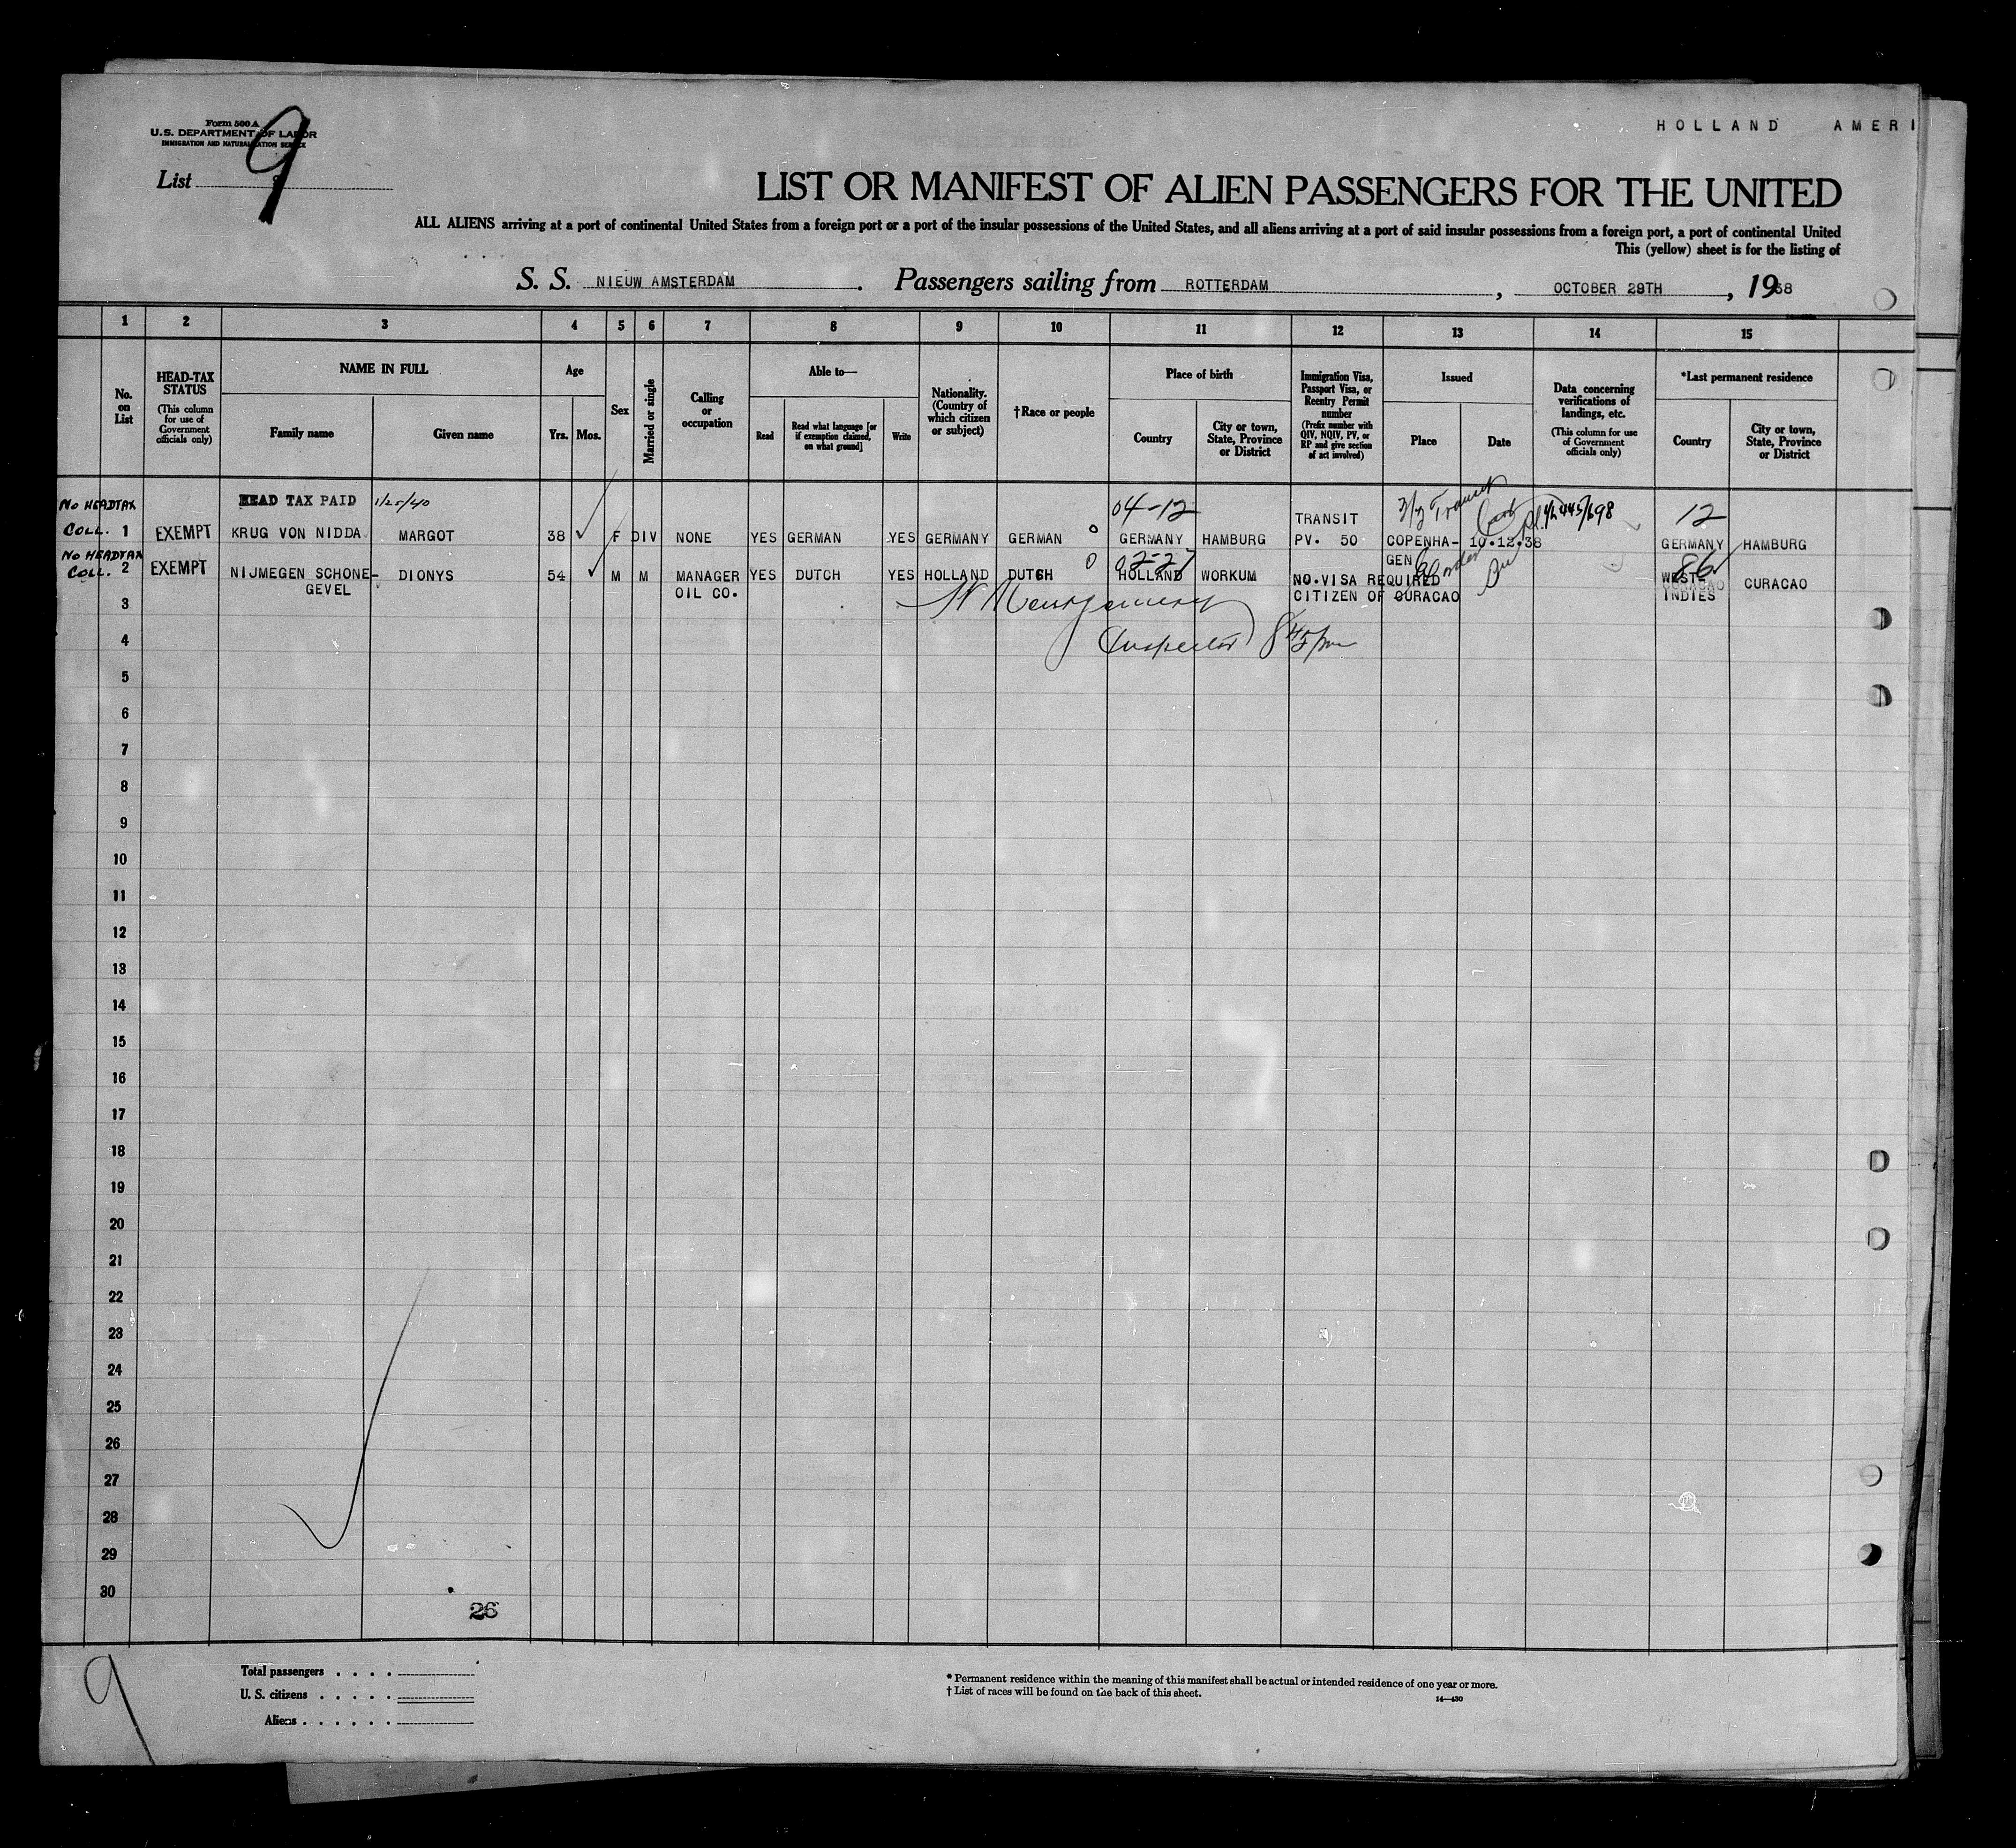 Form 500 A
U.S. DEPARTMENT OF LABOR
IMMIGRATION AND NATURALIZATION SERVICE
List 9
HOLLAND AMERI
LIST OR MANIFEST OF ALIEN PASSENGERS FOR THE UNITED
ALL ALIENS arriving at a port of continental United States from a foreign port or a port of the insular possessions of the United States, and all aliens arriving at a port of said insular possessions from a foreign port, a port of continental United
This (yellow) sheet is for the listing of
S. S. NIEUW AMSTERDAM. Passengers sailing from ROTTERDAM, OCTOBER 29TH, 1938
1 2 3 4 5 6 7 8 9 10 11 12 13 14 15
No. on List
HEAD-TAX STATUS
(This column for use of Government officials only)
NAME IN FULL
Family name
Given name
Age
Yrs. Mos.
Sex
Married or single
Calling or occupation
Able to—
Read
Read what language [or if exemption claimed, on what ground]
Write
Nationality. (Country of which citizen or subject)
†Race or people
Place of birth
Country
City or town, State, Province or District
Immigration Visa, Passport Visa, or Reentry Permit number
(Prefix number with QIV, NQIV, PV, or RP and give section of act involved)
Issued
Place
Date
Data concerning verifications of landings, etc.
(This column for use of Government officials only)
*Last permanent residence
Country
City or town, State, Province or District
NO HEADTAX HEAD TAX PAID 1/25/40 04-12 3/3 Transit 12
COLL. 1 EXEMPT KRUG VON NIDDA MARGOT 38 F DIV NONE YES GERMAN YES GERMANY GERMAN GERMANY HAMBURG TRANSIT PV. 50 COPENHAGEN 10.12.38 GERMANY HAMBURG
NO HEADTAX 02-27 86
COLL. 2 EXEMPT NIJMEGEN SCHONE- DIONYS 54 M M MANAGER YES DUTCH YES HOLLAND DUTCH HOLLAND WORKUM NO.VISA REQUIRED WEST CURACAO
GEVEL OIL CO. CITIZEN OF CURACAO INDIES
3
Montgomery
4
Inspector 8 45 pm
5
6
7
8
9
10
11
12
13
14
15
16
17
18
19
20
21
22
23
24
25
26
27
28
29
30
26
9
Total passengers . . . .
U. S. citizens . . . . .
Aliens . . . . . .
* Permanent residence within the meaning of this manifest shall be actual or intended residence of one year or more.
† List of races will be found on the back of this sheet.
14—430